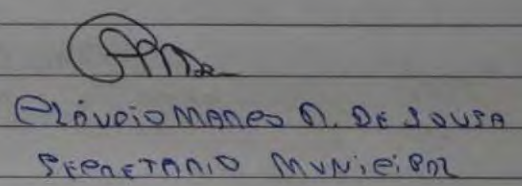 Cláudio Marco A. de Sousa
Secretario Municipal